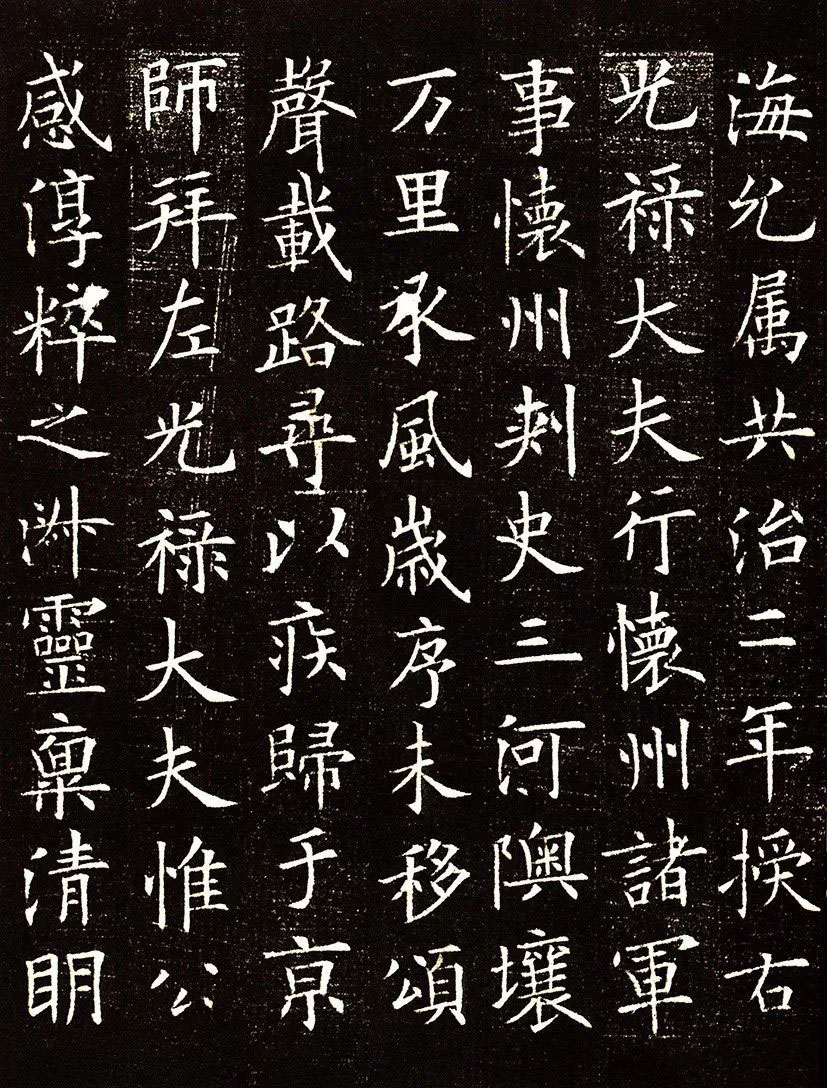 海允属共治二年授右
光禄大夫行懷州諸軍
事懷州刺史三河隩壤
万里承風歳序未移頌
聲載路尋以疾歸于亰
師拜左光禄大夫惟公
感淳粹之淑靈禀清眀